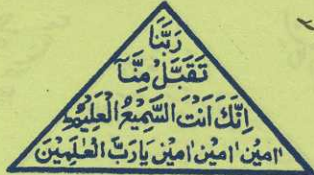 رَبَّنَا
تَقَبَّلْ مِنَّآ
اِنَّكَ اَنْتَ السَّمِيْعُ الْعَلِيْمُ
امِيْن امِيْن امِيْن يَا رَبَّ الْعٰلَمِيْنَ